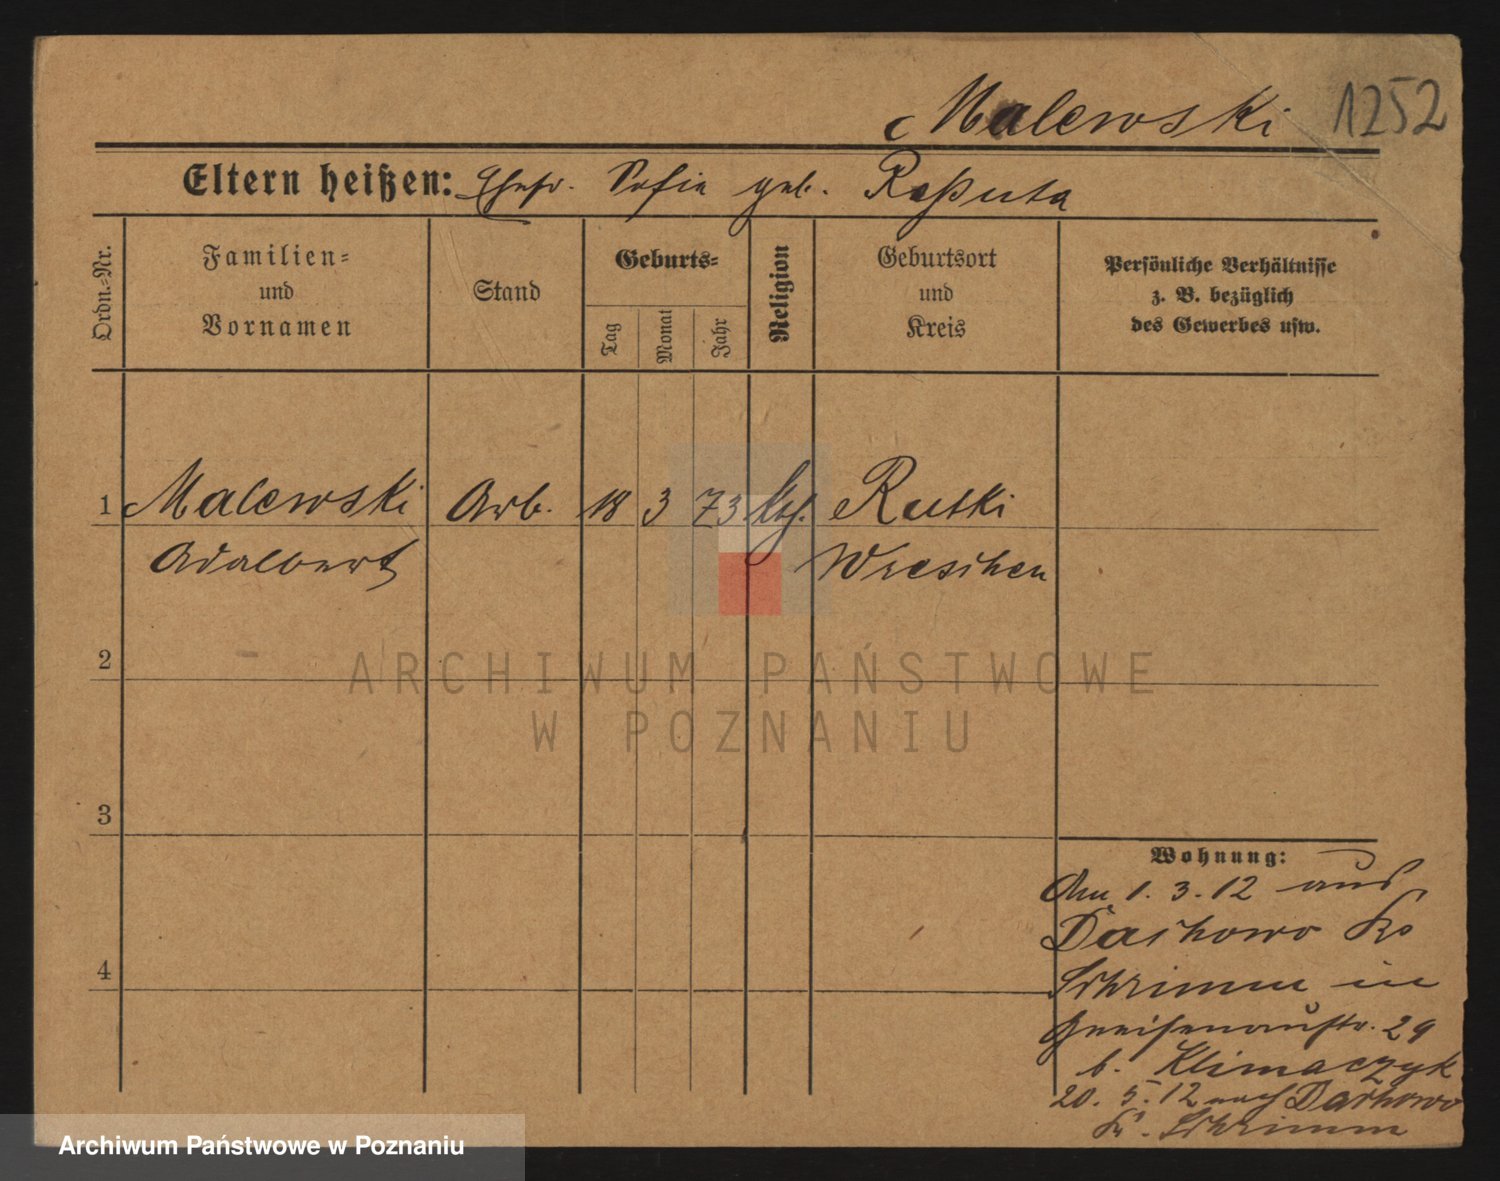 Malewski 1252
Eltern heißen: Ehefr. Sofie geb. Raputa
Ordn.-Nr.
Familien-
und
Vornamen
Stand
Geburts-
Tag
Monat
Jahr
Religion
Geburtsort
und
Kreis
Persönliche Verhältnisse
z. B. bezüglich
des Gewerbes usw.
1 Malewski Arb. 18 3 73 kth. Rutki
Adalbert Wreschen
2
3
4
Wohnung:
Am 1. 3. 12 aus
Dachowo Krs
Schrimm in
Gneisenaustr. 29
b. Klimaczyk
20. 5. 12 nach Dachowo
Kr. Schrimm
ARCHIWUM PAŃSTWOWE
W POZNANIU
Archiwum Państwowe w Poznaniu